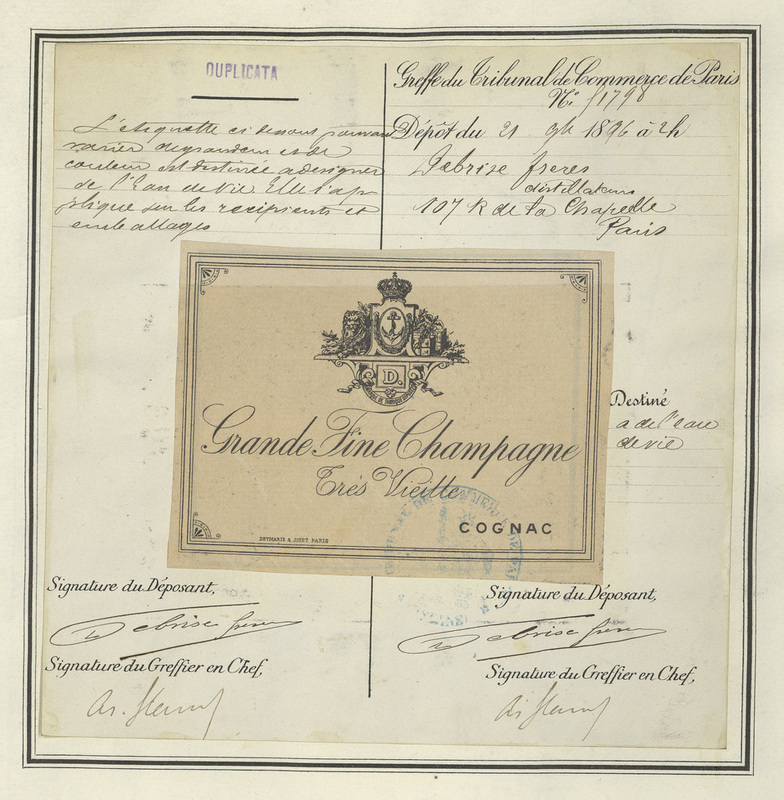 DUPLICATA
L'étiquette ci dessous pouvant
varier de grandeur et de
couleur est destinée a désigner
de l'Eau de Vie Elle s'ap
plique sur les recipients et
emballages
Greffe du Tribunal de Commerce de Paris
No
Dépôt du 21 9bre 1896 à 2h
Debrise freres
distillateurs
107 R de la Chapelle
Paris
D.
Grande Fine Champagne
Très Vieille
COGNAC
PARIS
Destiné
a de l'eau
de vie
Signature du Déposant,
Debrise freres
Signature du Greffier en Chef,
Signature du Déposant,
Debrise freres
Signature du Greffier en Chef,